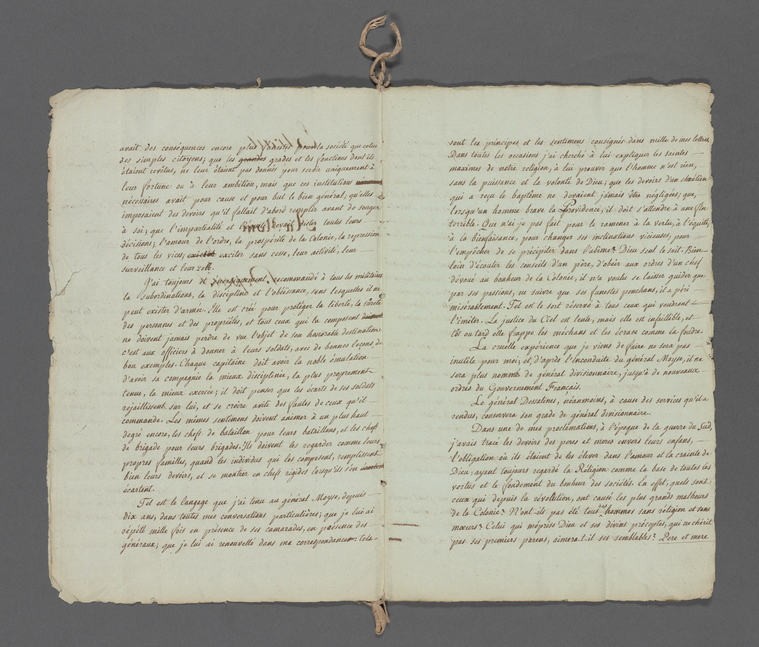 avait des conséquences encore plus funestes pour la société que celui
des simples citoyens; que les grandes grades et les fonctions dont ils
étaient revêtus, ne leur étaient pas donnés pour servir uniquement à
leur fortune ou à leur ambition, mais que ces institutions
nécessaires avait pour cause et pour but le bien général; qu'elles
imposaient des devoirs qu'il fallait d'abord remplir avant de songer
à soi; que l'impartialité et devaient dicter toutes leurs
divisions; l'amour de l'ordre, la prospérité de la Colonie, la répression
de tous les vices, exciter sans cesse, leur activité, leur
surveillance et leur zèle.
J'ai toujours et recommandé à tous les militaires
la subordination, la discipline et l'obéissance, sans lesquelles il ne
peut exister d'armée. Elle est créé pour protéger la liberté, la sûreté
des personnes et des propriétés, et tous ceux qui la composent
ne doivent jamais perdre de vue l'objet de son honorable destination;
c'est aux officiers à donner à leurs soldats, avec de bonnes leçons, de
bon exemples. Chaque capitaine doit avoir la noble émulation
d'avoir sa compagnie la mieux disciplinée, la plus proprement
tenue, la mieux exercée; il doit penser que les écarts de ses soldats
réjaillissent sur lui, et se croire avili des fautes de ceux qu'il
commande. Les mêmes sentimens doivent animer à un plus haut
degré encore, les chefs de bataillon pour leurs bataillons, et les chefs
de brigade pour leurs brigades. Ils doivent les regarder comme leurs
propres familles, quand les individus qui les composent, remplissent
bien leurs devoirs, et se montrer en chefs rigides lorsqu'ils s'en
écartent.
Tel est le langage que j'ai tenu au général Moyse, depuis
dix ans, dans toutes mes conversations particulières; que je lui ai
répété mille fois en présence de ses camarades, en présence des
généraux; que je lui ai renouvellé dans ma correspondance. tels
sont les principes et les sentimens consignés dans mille de mes lettres.
Dans toutes les occasions j'ai cherché à lui expliquer les saintes
maximes de notre religion, à lui prouver que l'homme n'est rien,
sans la puissance et la volonté de Dieu; que les devoirs d'un chrétien
qui a reçu le baptême ne devaient jamais être négligés; que,
lorsqu'un homme brave la Providence, il doit s'attendre à une fin
terrible. Que n'ai-je pas fait pour le ramener à la vertu, à l'équité,
à la bienfaisance, pour changer ses inclinations vicieuses, pour
l'empêcher de se précipiter dans l'abîme? Dieu seul le sait. Bien
loin d'écouter les conseils d'un père, d'obéir aux ordres d'un chef
dévoué au bonheur de la Colonie, il n'a voulu se laisser guider que
par ses passions, ne suivre que ses funestes penchans, il a péri
misérablement. Tel est le sort réservé à tous ceux qui voudront
l'imiter. La justice du Ciel est lente, mais elle est infaillible, et
tôt ou tard elle frappe les méchans et les écrase comme la foudre.
La cruelle expérience que je viens de faire ne sera pas
inutile pour moi; et d'après l'inconduite du général Moyse, il ne
sera plus nommé de général divisionnaire, jusqu'à de nouveaux
ordres du Gouvernement Français.
Le général Dessalines, néanmoins, à cause des services qu'il a
rendus, conservera son grade de général divisionnaire.
Dans une de mes proclamations, à l'époque de la guerre du Sud,
j'avais tracé les devoirs des pères et mères envers leurs enfans,
l'obligation où ils étaient de les élever dans l'amour et la crainte de
Dieu; ayant toujours regardé la Réligion comme la base de toutes les
vertus et le fondement du bonheur des sociétés. En effet, quels sont
ceux qui depuis la révolution, ont causé les plus grands malheurs
de la Colonie? N'ont-ils pas été tous les hommes sans réligion et sans
mœurs? Celui qui méprise Dieu et ses divins préceptes, qui ne chérit
pas ses premiers parens, aimera-t-il ses semblables? Père et mère